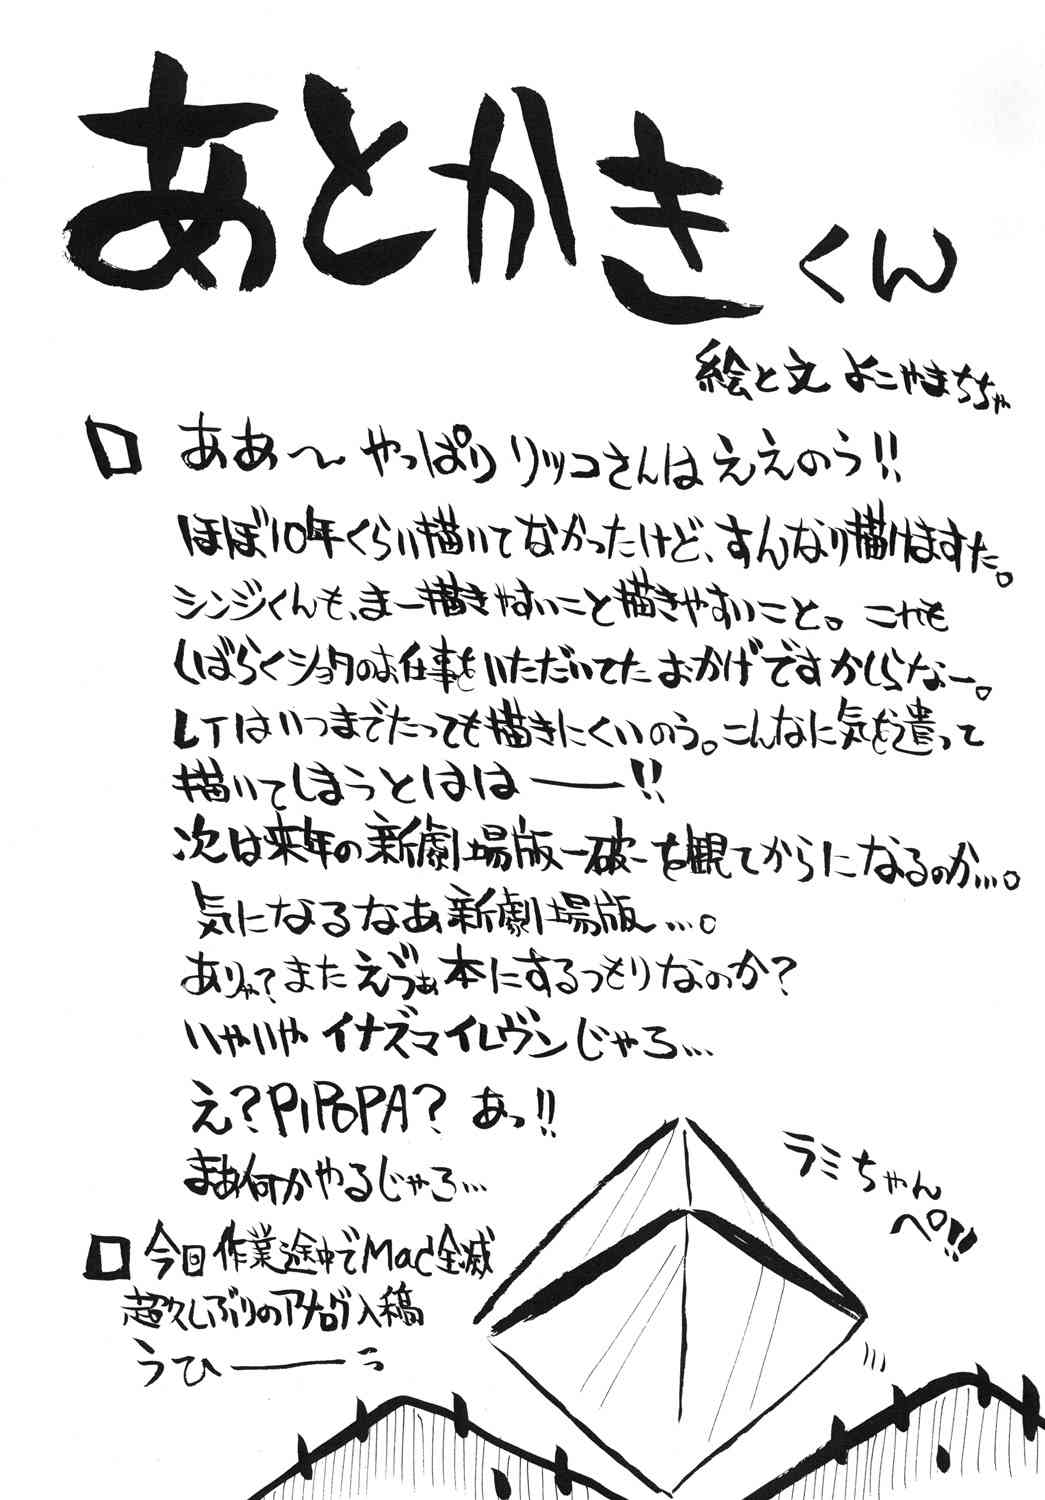 あとかきくん
絵と文 よこやまちちゃ
□ ああ〜やっぱりリッコさんはええのう!!
ほぼ10年くらい描いてなかったけど、すんなり描けますた。
シンジくんも、まー描きやすいこと描きやすいこと。これも
しばらくショタのお仕事をいただいてたおかげですかしらなー。
レイはいつまでたっても描きにくいのう。こんなに気を遣って
描いてしまうとはは――!!
次は来年の新劇場版-破-を観てからになるのか…。
気になるなあ新劇場版…。
ありゃ?またえづぁ本にするつもりなのか?
いやいやイナズマイレヴンじゃろ…
え?PiPoPA?あっ!!
まぁ何かやるじゃろ…
□ 今回作業途中でMac全滅
超久しぶりのアナログ入稿
うひ――っ
ラミちゃん
ペ!!